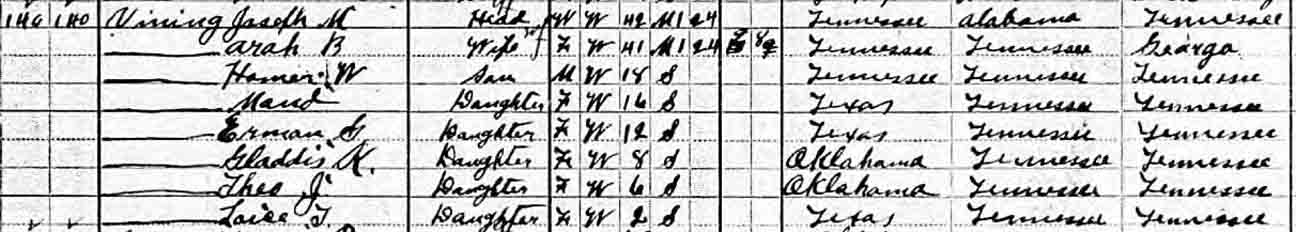 146 140 Vining Joseph M Head M W 42 M1 24 Tennessee Alabama Tennessee
Arah B Wife F W 41 M1 24 Tennessee Tennessee Gearga
Homer W Son M W 18 S Tennessee Tennessee Tennessee
Maud Daughter F W 16 S Texas Tennessee Tennessee
Erman G Daughter F W 12 S Texas Tennessee Tennessee
Gladdis K. Daughter F W 8 S Oklahama Tennessee Tennessee
Theo J Daughter F W 6 S Oklahama Tennessee Tennessee
Loice T. Daughter F W 2 S Texas Tennessee Tennessee